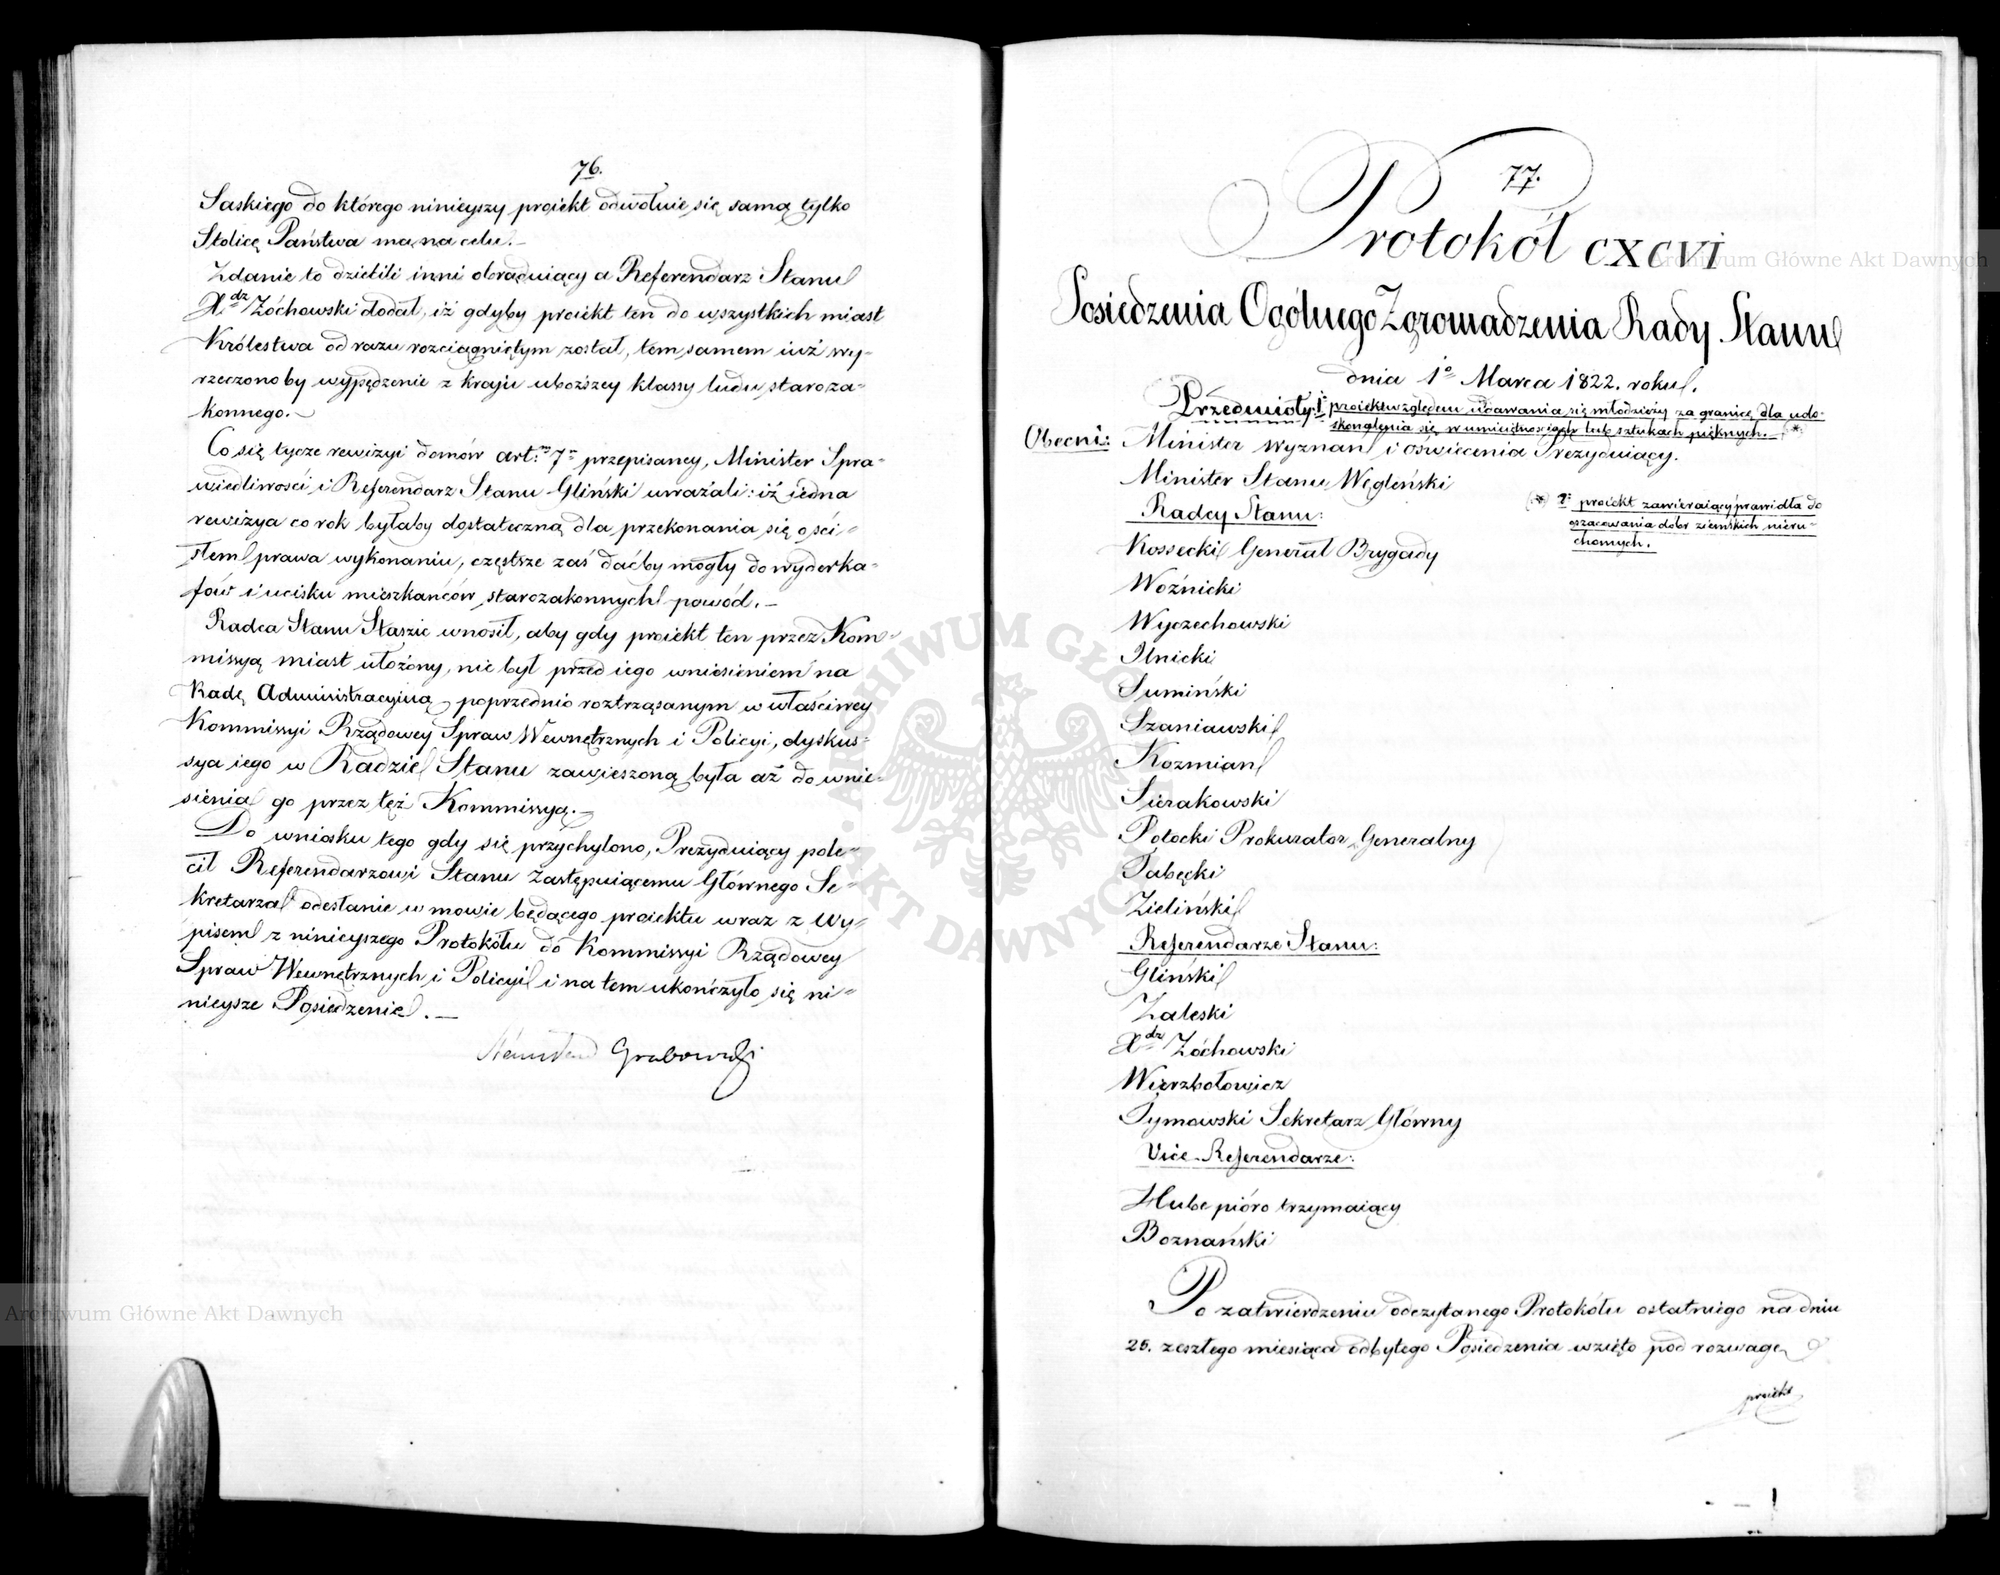 76.
Saskiego do którego ninieyszy proiekt odwołuie się samą tylko
Stolicę Państwa ma na celu. –
Zdanie to dzielili inni obraduiący a Referendarz Stanu
X<sup>dz</sup> Zóchowski dodał, iż gdyby proiekt ten do wszystkich miast
Królestwa od razu rozciągniętym został, tem samem iuż wy-
rzeczonoby wypędzenie z kraju uboższey klassy ludu staroza-
konnego. –
Co się tycze rewizyi domów art. 7 przepisaney, Minister Spra-
wiedliwości i Referendarz Stanu Gliński uważali: iż iedna
rewizya co rok byłaby dostateczną dla przekonania się o ści-
słem prawa wykonaniu, częstsze zaś daćby mogły do wyderka-
fów i ucisku mieszkańców starozakonnych powód. –
Radca Stanu Staszic wnosił, aby gdy proiekt ten przez Kom-
missyą miast ułożony, nie był przed iego wniesieniem na
Radę Administracyiną poprzednio roztrząsanym w właściwey
Kommissyi Rządowey Spraw Wewnętrznych i Policyi, dyskus-
sya iego w Radzie Stanu zawieszoną była aż do wnie-
sienia go przez tęż Kommissyą. –
Do wniosku tego gdy się przychylono, Prezyduiący pole-
cił Referendarzowi Stanu Zastępuiącemu Głównego Se-
kretarza odesłanie w mowie będącego proiektu wraz z Wy-
pisem z ninieyszego Protokółu do Kommissyi Rządowey
Spraw Wewnętrznych i Policyi i na tem ukończyło się ni-
nieysze Posiedzenie. –
Stanisław Grabowski
77.
Protokół CXCVI
Posiedzenia Ogólnego Zgromadzenia Rady Stanu
dnia 1<sup>o</sup> Marca 1822. roku.
Przedmioty: 1<sup>o</sup> proiekt względem udawania się młodzieży za granicę dla udo-
skonalenia się w umieiętnościach lub sztukach pięknych. – (*)
Obecni: Minister Wyznań i oświecenia Prezyduiący.
Minister Stanu Węgleński
(*) 2<sup>o</sup> proiekt zawieraiący prawidła do
oszacowania dóbr ziemskich nieru-
chomych.
Radcy Stanu:
Kossecki Generał Brygady
Woźnicki
Wyczechowski
Ilnicki
Sumiński
Szaniawski
Kozmian
Sierakowski
Potocki Prokurator Generalny
Tabęcki
Zieliński
Referendarze Stanu:
Gliński
Zaleski
X<sup>dz</sup> Zóchowski
Wierzbołowicz
Tymowski Sekretarz Główny
Vice-Referendarze:
Hube pióro trzymaiący
Boznański
Po zatwierdzeniu odczytanego Protokółu ostatniego na dniu
25. zeszłego miesiąca odbytego Posiedzenia wzięto pod rozwagę
proiekt
ARCHIWUM GŁÓWNE AKT DAWNYCH
Archiwum Główne Akt Dawnych
Archiwum Główne Akt Dawnych